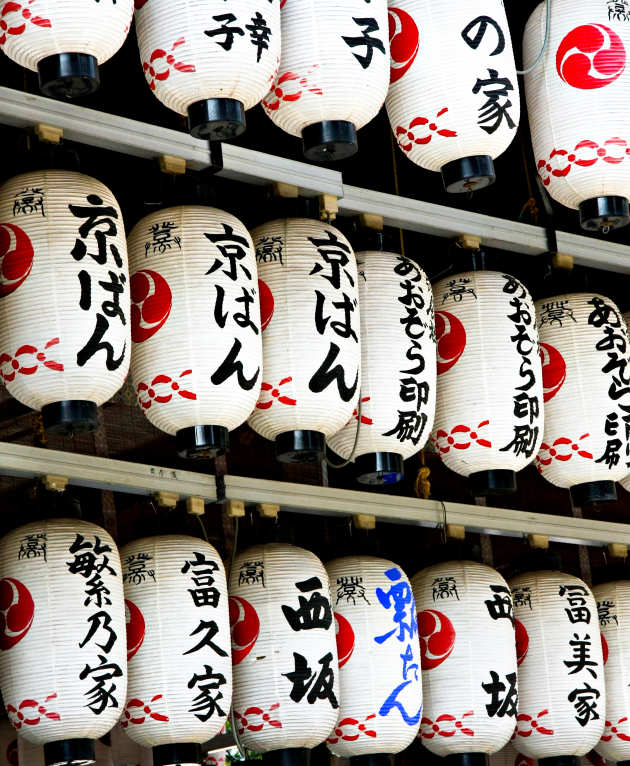 子幸
子
の家
京ばん
京ばん
京ばん
あおぞら印刷
あおぞら印刷
あおぞら印刷
繁乃家
富久家
西坂
瓢たん
西坂
冨美家